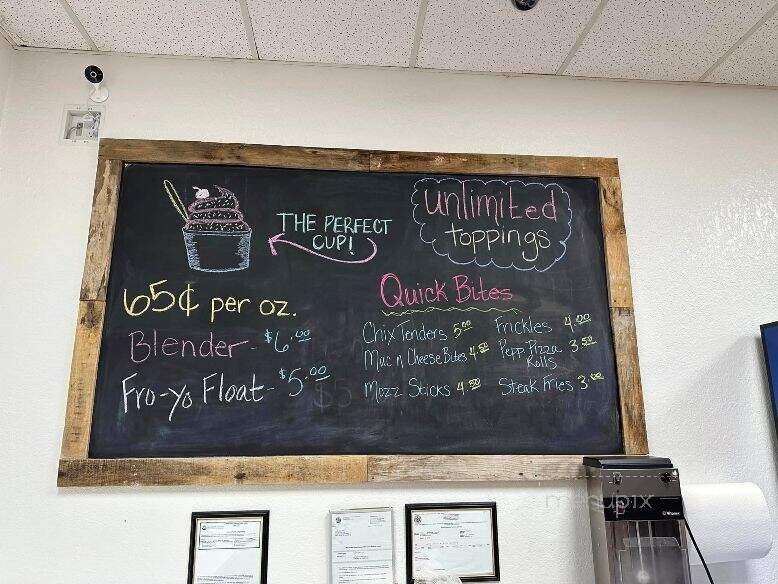 THE PERFECT
CUP!
unlimited
toppings
65¢ per oz.
Blender - $6.00
Fro-yo Float - $5.00
Quick Bites
Chix Tenders 5.00
Mac n Cheese Bites 4.50
Mozz Sticks 4.50
Frickles 4.00
Pepp. Pizza 3.50
Rolls
Steak Fries 3.00
menupix